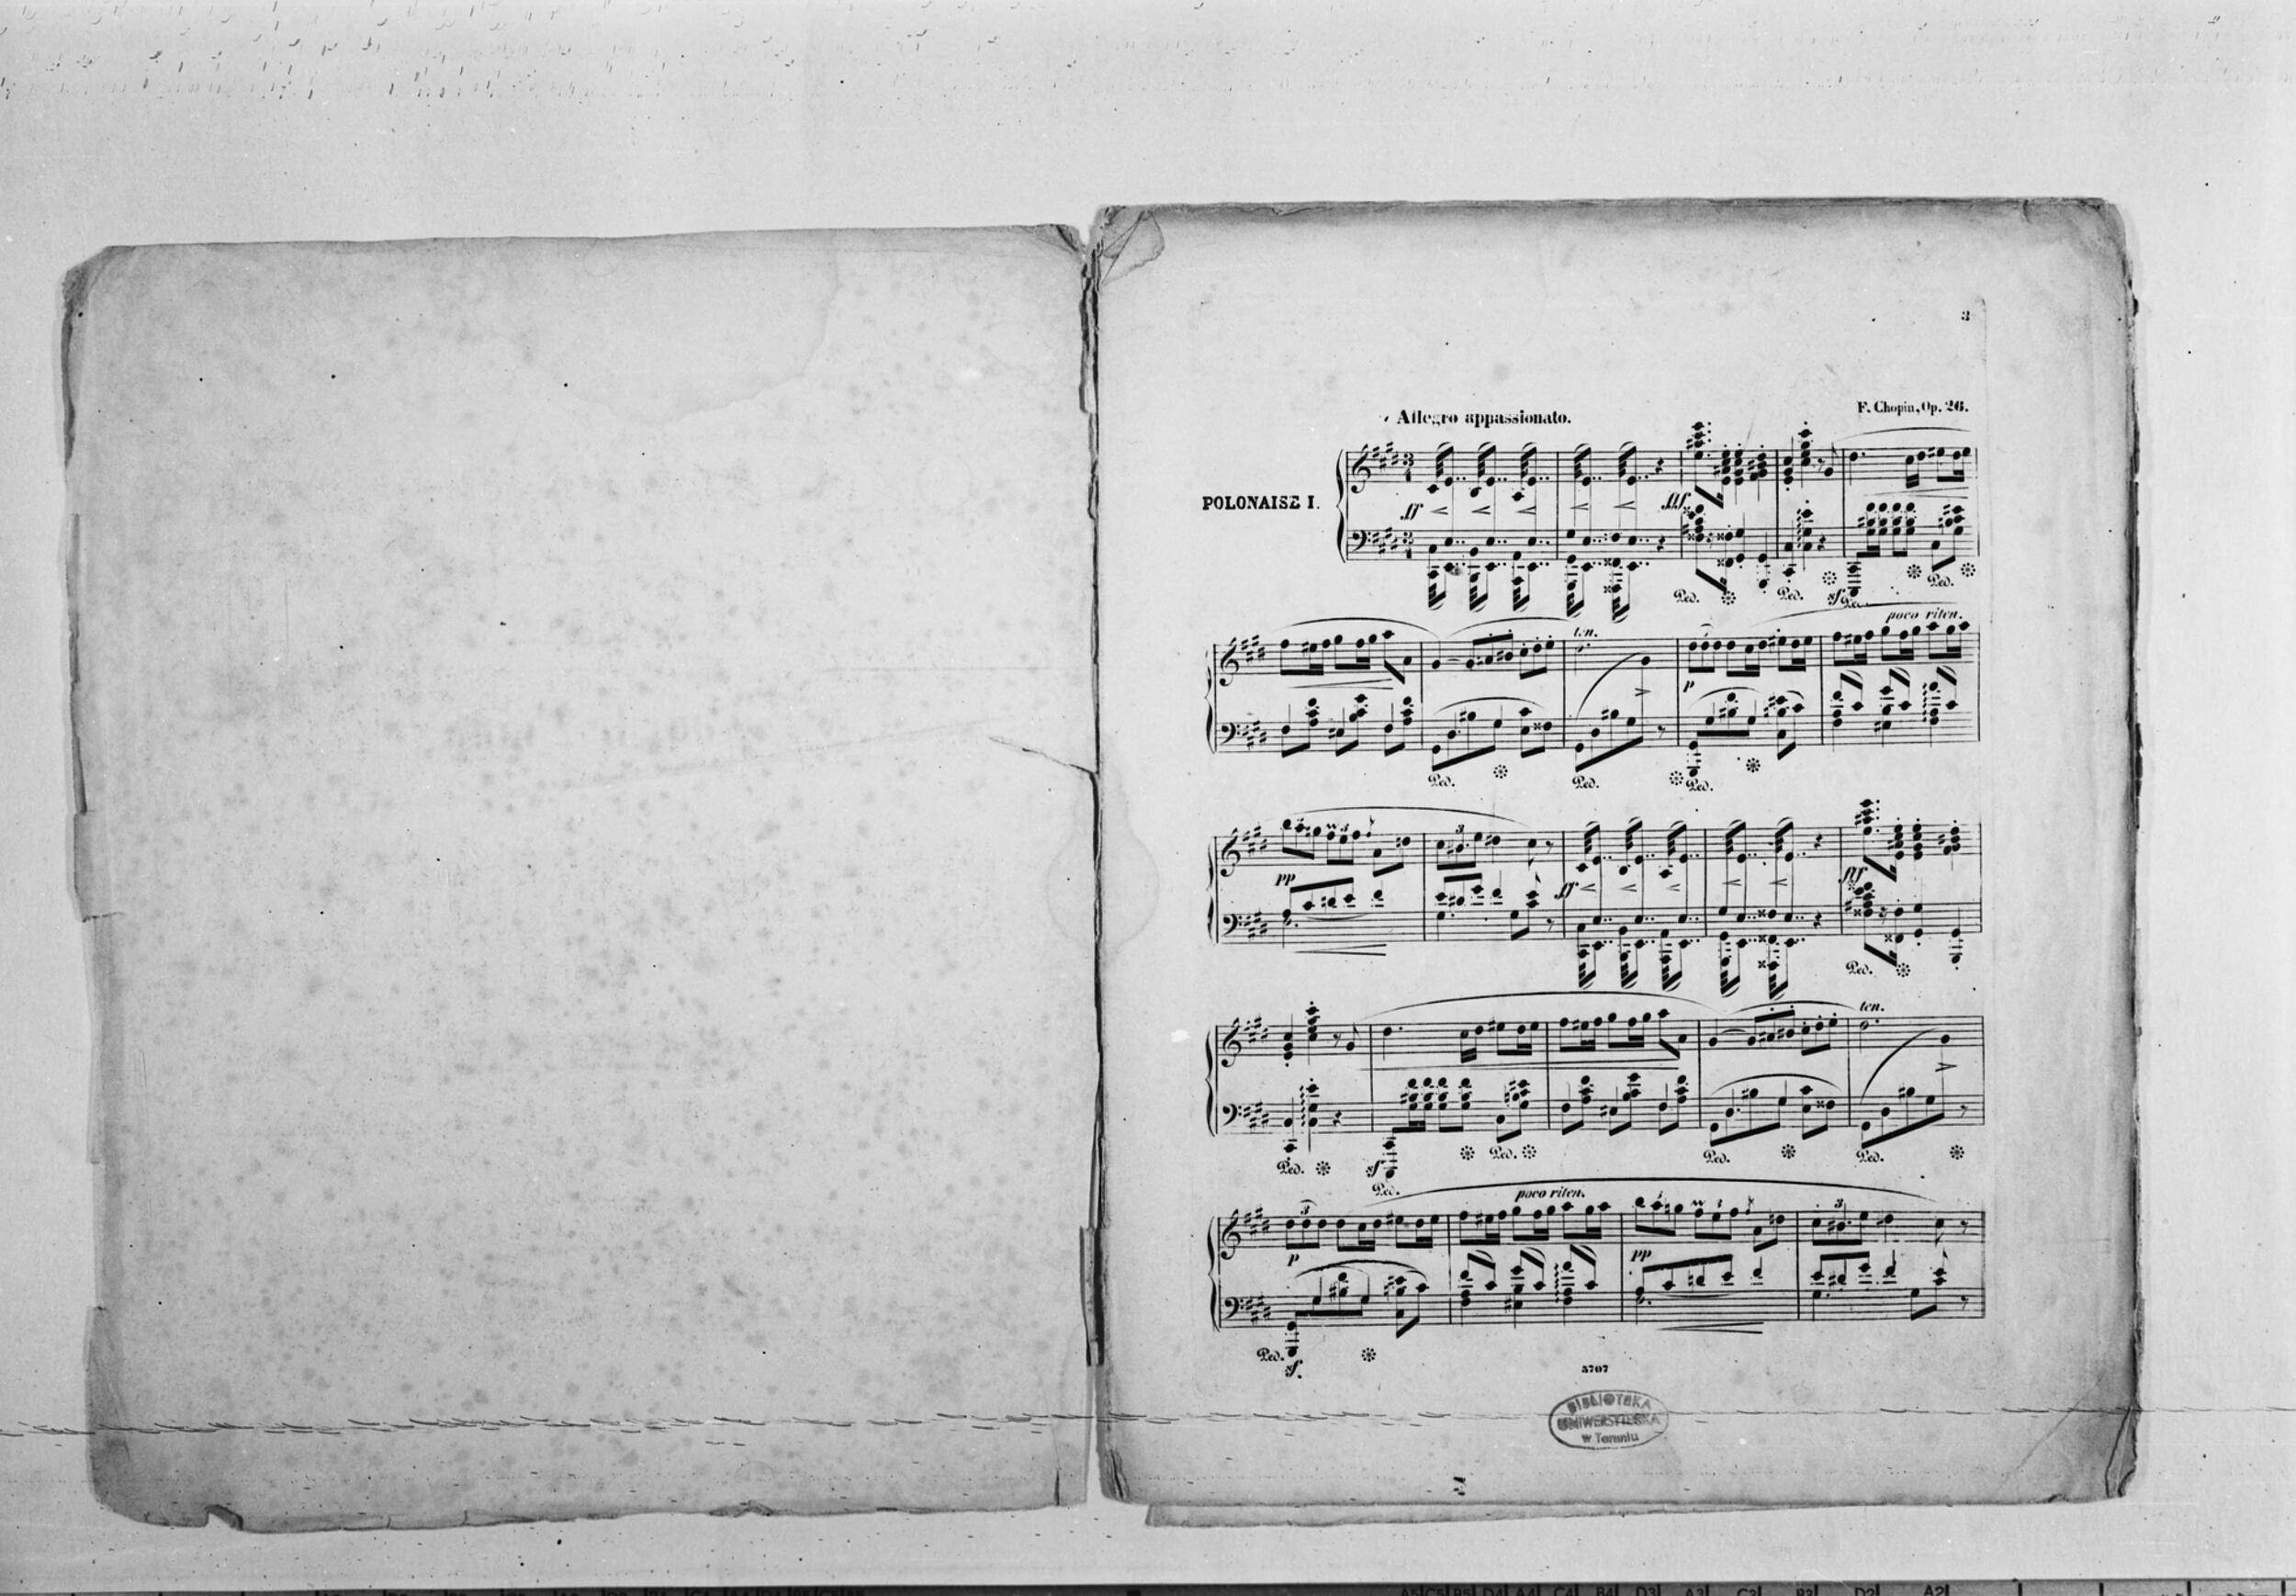 3
Allegro appassionato.
F. Chopin, Op. 26.
POLONAISE I.
ff
fff
Ped. Ped. sf Ped. Ped.
poco riten.
ten.
p
Ped. Ped. Ped.
3
pp
3
ff
fff
Ped.
ten.
Ped. sf Ped. Ped. Ped. Ped.
poco riten.
3 3
p
pp
Ped. sf.
5707
BIBLIOTEKA
UNIWERSYTECKA
w Toruniu
A5 C5 B5 D4 A4 C4 B4 D3 A3 C3 B3 D2 A2